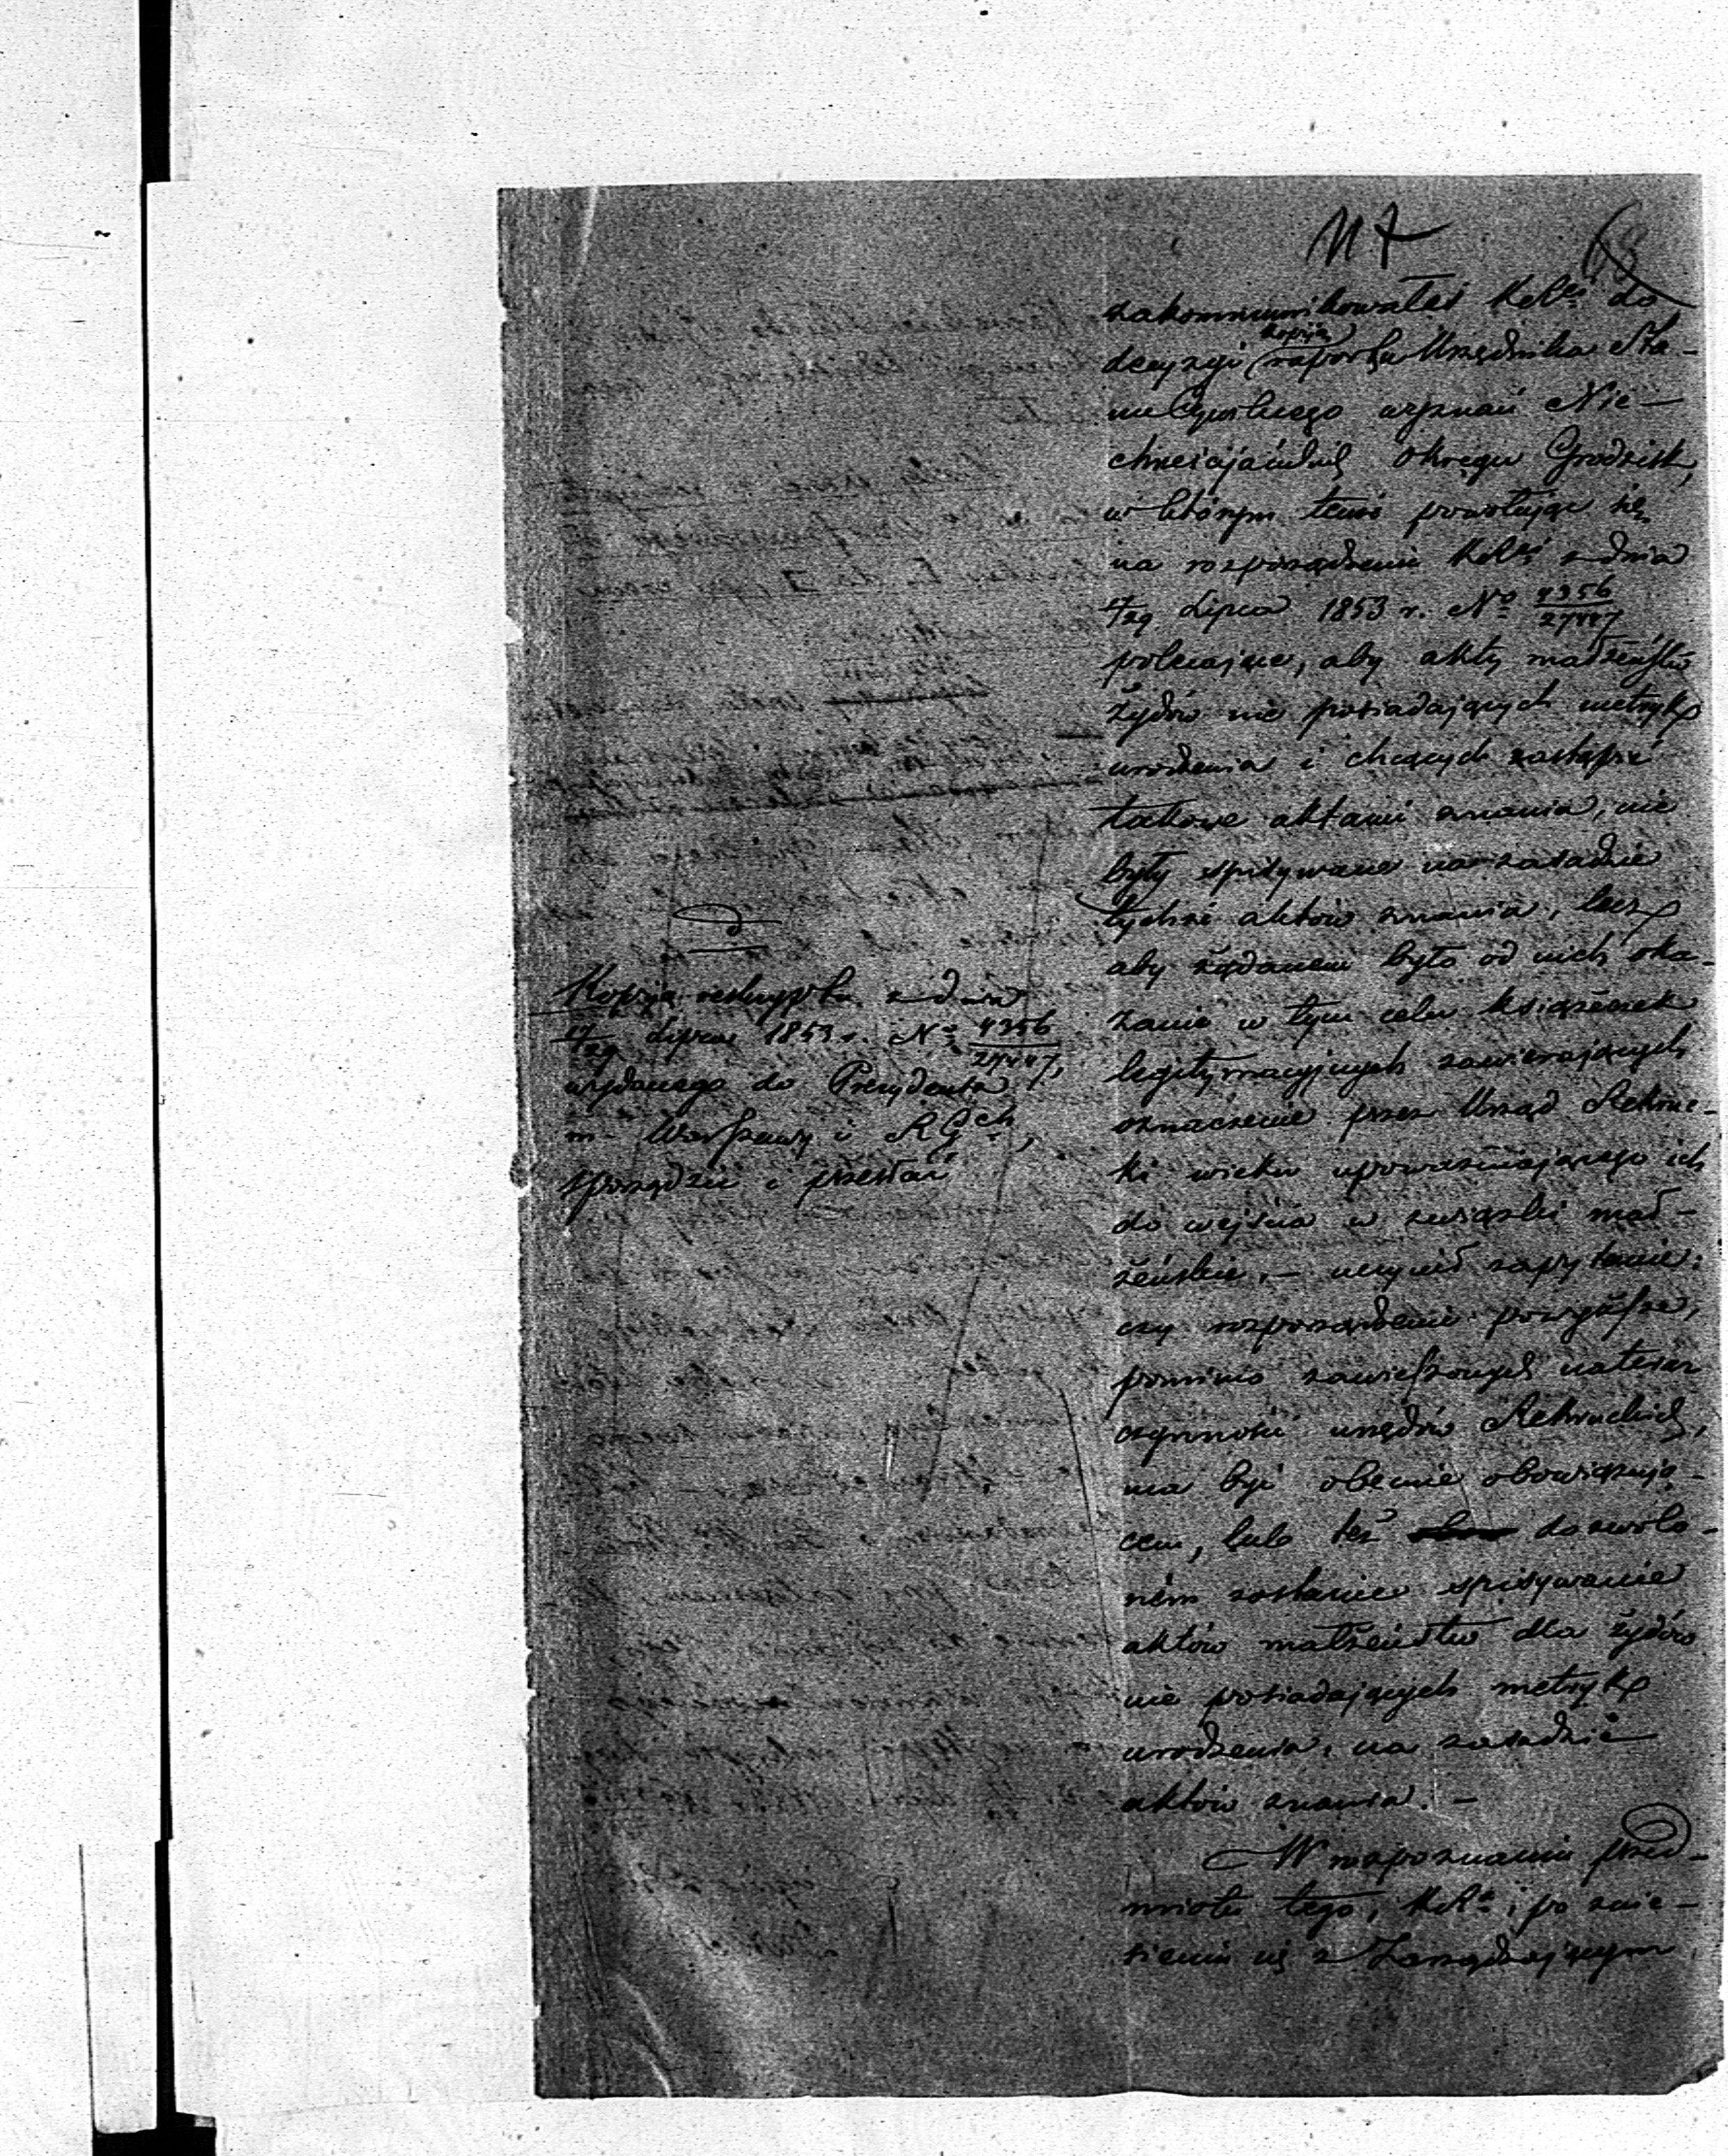 117
68
zakommunikowałeś KRśi do
kopiją
decyzyi raportu Urzędnika Sta-
nu Cywilnego wyznań Nie-
chrześcijańskich Okręgu Grodzisk,
w którym tenże powołując się
na rozporządzenie KRśi z dnia
17/29 Lipca 1853 r. No 4356/27447
polecające, aby akty małżeństw
Żydów nie posiadających metryk
urodzenia i chcących zastąpić
takowe aktami znania, nie
były spisywane na zasadzie
tychże aktów znania, lecz
aby żądanem było od nich oka-
zanie w tym celu książeczek
legitymacyjnych zawierających
oznaczenie przez Urząd Rekruc-
ki wieku upoważniającego ich
do wejścia w związki mał-
żeńskie, – uczynił zapytanie:
czy rozporządzenie powyższe,
pomimo zawieszonych na teraz
czynności urzędów Rekruckich,
ma być obecnie obowiązują-
cem, lub też dozwolo-
ném zostanie spisywanie
aktów małżeństw dla żydów
nie posiadających metryk
urodzenia, na zasadzie
aktów znania. –
W rozpoznaniu przed-
miotu tego, KRa; po znie-
sieniu się z Zarządzającym
Kopija reskryptu z dnia
17/29 Lipca 1853 r. No 4356/27447,
wydanego do Prezydenta
m. Warszawy i RGch,
sporządzić i przesłać